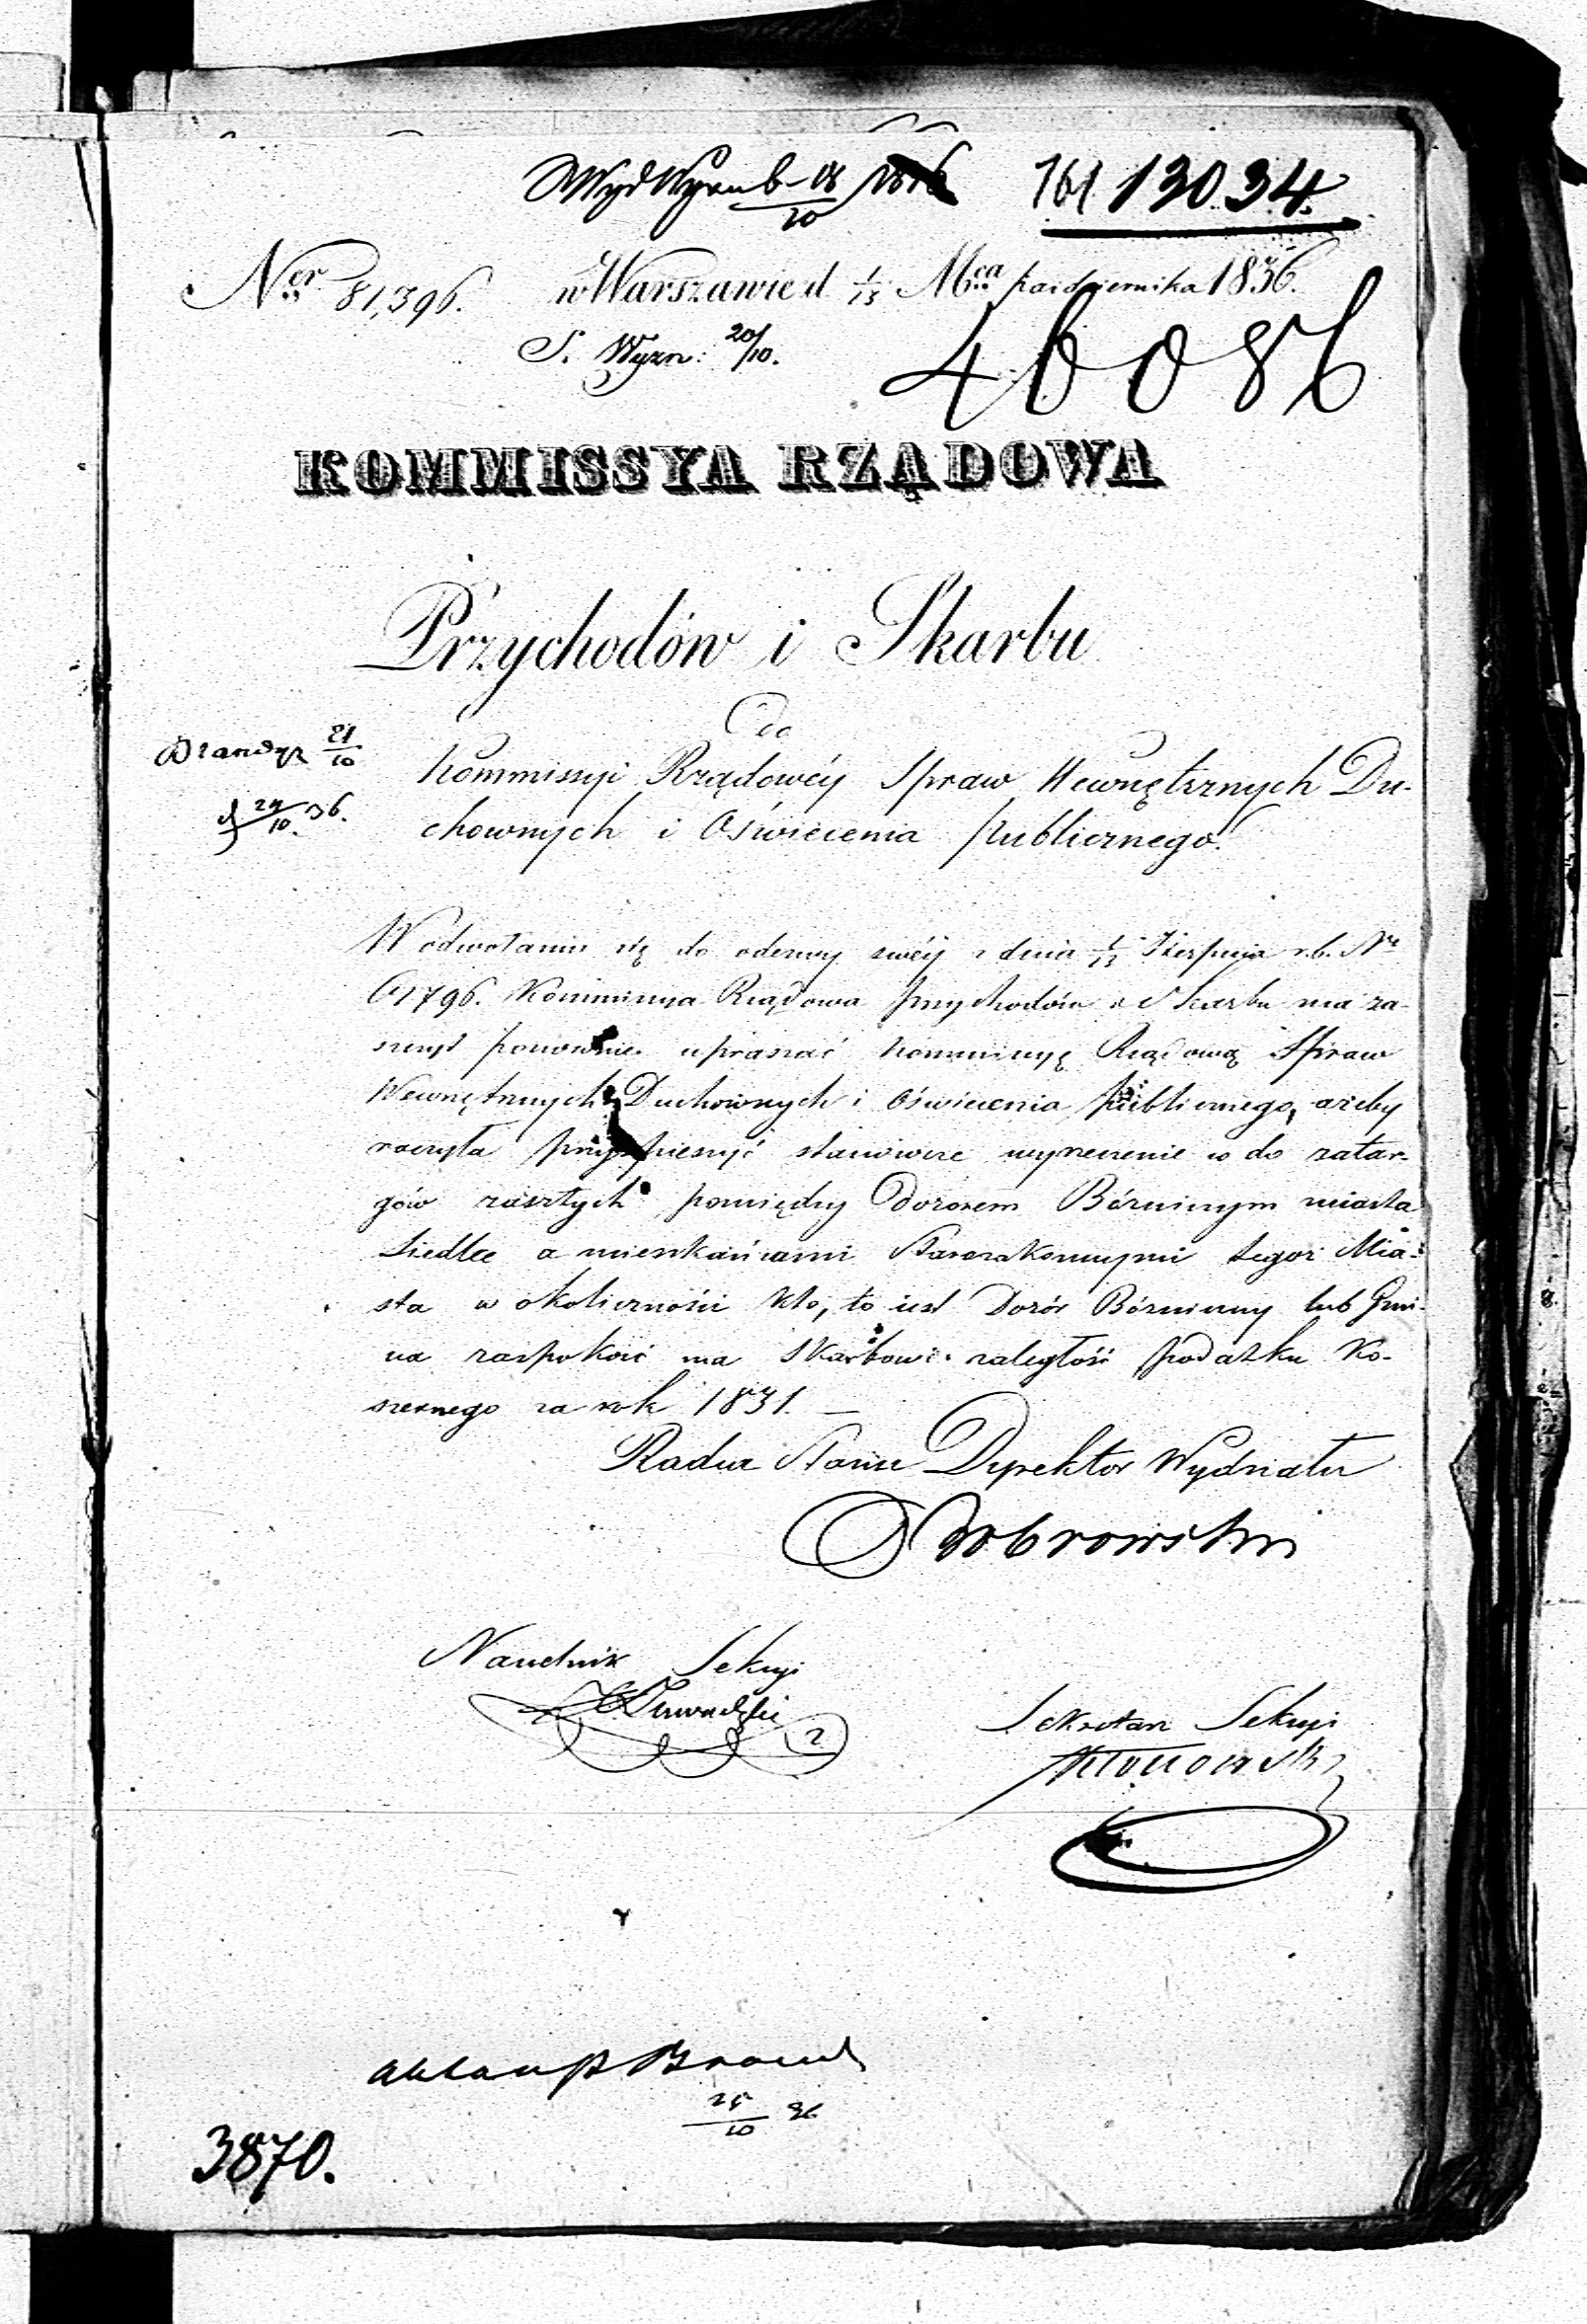 WydWyzn 18/10 1836 161 13034
Ner 81,396. w Warszawie d 1/13 Mca Października 1836.
S. Wyzn: 20/10.
46086
KOMMISSYA RZĄDOWA
Przychodów i Skarbu
Do
21/10
Kommissyi Rządowéy Spraw Wewnętrznych Du-
24/10. 36.
chownych i Oświecenia publicznego.
W odwołaniu się do odezwy swéy z dnia 1/13 Sierpnia r.b. Nr
61796. Kommissya Rządowa Przychodów i Skarbu ma za-
szczyt ponownie upraszać Kommissyę Rządową Spraw
Wewnętrznych Duchownych i Oświecenia publicznego, ażeby
raczyła przyspieszyć stanowcze wyrzeczenie co do zatar-
gów zaszłych pomiędzy Dozorem Bóżniczym miasta
Siedlce a mieszkańcami Starozakonnymi tegoż Mia-
sta w okoliczności kto, to iest Dozór Bóżniczny lub Gmi-
na zaspokoić ma Skarbowi zaległość podatku Ko-
szernego za rok 1831. —
Radca Stanu Dyrektor Wydziału
Dobrowolski
Naczelnik Sekcyi
Sekretarz Sekcyi
25/10 36
3870.